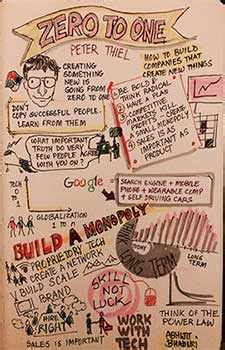 ZERO TO ONE
PETER THIEL
HOW TO BUILD
COMPANIES THAT
CREATE NEW THINGS
CREATING
SOMETHING
NEW IS
GOING FROM
ZERO TO ONE
1. BE BOLD &
THINK RADICAL
2. HAVE A PLAN
3. COMPETITIVE
MARKETS DESTROY
A SMALL MONOPOLY
5 SALES IS AS
IMPORTANT AS
PRODUCT
DON'T
COPY SUCCESSFUL PEOPLE.
LEARN FROM THEM
WHAT IMPORTANT
TRUTH DO VERY
FEW PEOPLE AGREE
WITH YOU ON?
TECH
Google
SEARCH ENGINE + MOBILE
PHONE + WEARABLE COMP
+ SELF DRIVING CARS
GLOBALIZATION
1 TO n
BUILD A MONOPOLY
PROPRIETORY TECH
CREATE NETWORK
BUILD SCALE
BRAND
TODAY
LONG
TERM
THINK LONG TERM
SKILL
NOT
LUCK
THINK OF THE
POWER LAW
HIRE
RIGHT
WORK WITH
TECH
SALES IS IMPORTANT
ABHIJIT
BHADURI